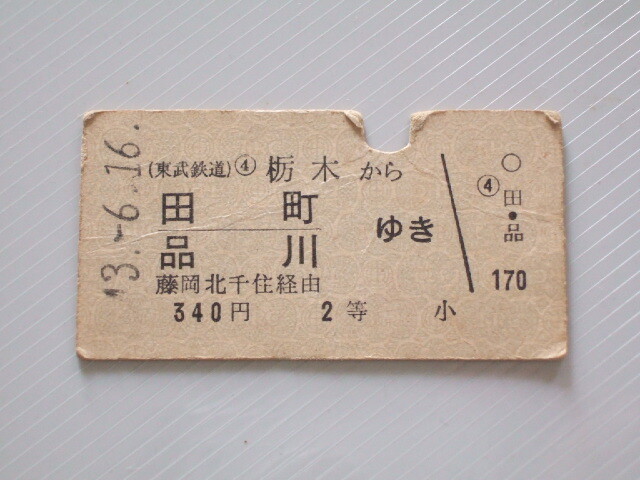 43.-6.16.
(東武鉄道) ④ 栃木から
田町
品川
ゆき
藤岡北千住経由
340円 2等 小
④ ○田●品
170